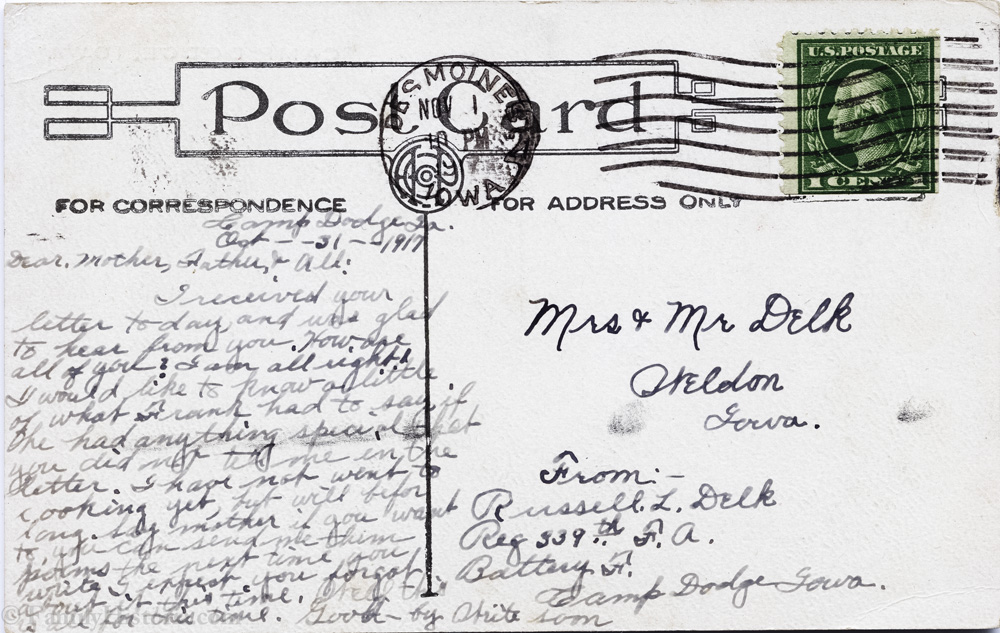 Post Card
DES MOINES
NOV 1
10 PM
IOWA
U.S.POSTAGE
1 CENT 1
FOR CORRESPONDENCE
FOR ADDRESS ONLY
Camp Dodge Ia.
Oct - - 31 - - 1917
Dear. Mother, Father, & All:
I received your
letter to day, and was glad
to hear from you. How are
all of you? I am all right!
I would like to know a little
of what Frank had to say, if
he had anything special that
you did not tell me in the
letter. I have not went to
cooking yet, but will before
long. Say mother if you want
to you can send me them
the next time you
write I expect you forgot
about it this time. Well this
is all for this time. Good-by Write soon
Mrs & Mr Delk
Weldon
Iowa.
From:-
Russell. L. Delk
Reg 339.th F. A.
Battery F.
Camp Dodge Iowa.